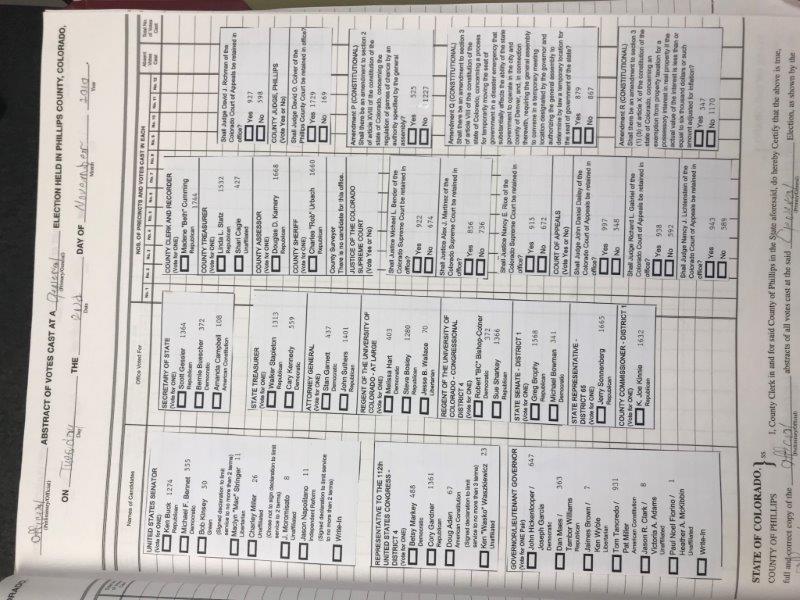 Official
ABSTRACT OF VOTES CAST AT A General ELECTION HELD IN PHILLIPS COUNTY, COLORADO,
(Primary/Official)
ON Tuesday THE 2nd DAY OF November 2010
Day Date Month Year
Names of Candidates
UNITED STATES SENATOR
(Vote for ONE)
Ken Buck 1274
Republican
Michael F. Bennet 355
Democratic
Bob Kinsey 30
Green
(Signed declaration to limit
service to no more than 2 terms)
Maclyn "Mac" Stringer 11
Libertarian
Charley Miller 26
Unaffiliated
(Chose not to sign declaration to limit
service to 2 terms)
J. Moromisato 8
Unaffiliated
Jason Napolitano 11
Independent Reform
(Signed declaration to limit service
to no more than 2 terms)
Write-In
REPRESENTATIVE TO THE 112th
UNITED STATES CONGRESS -
DISTRICT 4
(Vote for ONE)
Betsy Markey 488
Democratic
Cory Gardner 1361
Republican
Doug Aden 67
American Constitution
(Signed declaration to limit
service to no more than 3 terms)
Ken "Wasko" Waszkiewicz 23
Unaffiliated
GOVERNOR/LIEUTENANT GOVERNOR
(Vote for ONE Pair)
John Hickenlooper / 647
Joseph Garcia
Democratic
Dan Maes 363
Tambor Williams
Republican
Jaimes Brown / 7
Ken Wyble
Libertarian
Tom Tancredo / 931
Pat Miller
American Constitution
Jason R. Clark / 8
Victoria A. Adams
Unaffiliated
Paul Noel Fiorino / 1
Heather A. McKibbin
Unaffiliated
Write-In
Office Voted For
SECRETARY OF STATE
(Vote for ONE)
Scott Gessler 1364
Republican
Bernie Buescher 372
Democratic
Amanda Campbell 108
American Constitution
STATE TREASURER
(Vote for ONE)
Walker Stapleton 1313
Republican
Cary Kennedy 559
Democratic
ATTORNEY GENERAL
(Vote for ONE)
Stan Garnett 437
Democratic
John Suthers 1401
Republican
REGENT OF THE UNIVERSITY OF
COLORADO - AT LARGE
(Vote for ONE)
Melissa Hart 403
Democratic
Steve Bosley 1280
Republican
Jesse B. Wallace 70
Libertarian
REGENT OF THE UNIVERSITY OF
COLORADO - CONGRESSIONAL
DISTRICT 4
(Vote for ONE)
Robert "BC" Bishop-Cotner
Democratic 372
Sue Sharkey 1366
Republican
STATE SENATE - DISTRICT 1
(Vote for ONE)
Greg Brophy 1568
Republican
Michael Bowman 341
Democratic
STATE REPRESENTATIVE -
DISTRICT 65
(Vote for ONE)
Jerry Sonnenberg 1665
Republican
COUNTY COMMISSIONER - DISTRICT 1
(Vote for ONE)
K. Joe Kinnie 1632
Republican
NOS. OF PRECINCTS AND VOTES CAST IN EACH
No. 1 No. 2 No. 3 No. 4 No. 5 No. 6 No. 7 No. 8 No. 9 No. 10 No. 11 No. 12
Absent Votes Cast
Total No. of Votes Cast
COUNTY CLERK AND RECORDER
(Vote for ONE)
Madiline "Beth" Cumming 1744
Republican
COUNTY TREASURER
(Vote for ONE)
Linda L. Statz 1532
Republican
Sheri Cagle 427
Unaffiliated
COUNTY ASSESSOR
(Vote for ONE)
Douglas D. Kamery 1668
Republican
COUNTY SHERIFF
(Vote for ONE)
Charles "Rob" Urbach 1660
Republican
County Surveyor
There is no candidate for this office.
JUSTICE OF THE COLORADO
SUPREME COURT
(Vote Yes or No)
Shall Justice Michael L. Bender of the
Colorado Supreme Court be retained in
office?
Yes 922
No 674
Shall Justice Alex J. Martinez of the
Colorado Supreme Court be retained in
office?
Yes 856
No 736
Shall Justice Nancy E. Rice of the
Colorado Supreme Court be retained in
office?
Yes 915
No 672
COURT OF APPEALS
(Vote Yes or No)
Shall Judge John Daniel Dailey of the
Colorado Court of Appeals be retained in
office?
Yes 997
No 548
Shall Judge Richard L. Gabriel of the
Colorado Court of Appeals be retained in
office?
Yes 938
No 592
Shall Judge Nancy J. Lichtenstein of the
Colorado Court of Appeals be retained in
office?
Yes 943
No 589
Shall Judge David J. Richman of the
Colorado Court of Appeals be retained in
office?
Yes 927
No 598
COUNTY JUDGE, PHILLIPS
(Vote Yes or No)
Shall Judge David O. Colver of the
Phillips County Court be retained in office?
Yes 1729
No 169
Amendment P (CONSTITUTIONAL)
Shall there be an amendment to section 2
of article XVIII of the constitution of the
state of Colorado, concerning the
regulation of games of chance by an
authority specified by the general
assembly?
Yes 525
No 1227
Amendment Q (CONSTITUTIONAL)
Shall there be an amendment to section 3
of article VIII of the constitution of the
state of Colorado, concerning a process
for temporarily moving the seat of
government in a disaster emergency that
substantially affects the ability of the state
government to operate in the city and
county of Denver, and, in connection
therewith, requiring the general assembly
to convene in a temporary meeting
location designated by the governor and
authorizing the general assembly to
determine by law a temporary location for
the seat of government of the state?
Yes 879
No 867
Amendment R (CONSTITUTIONAL)
Shall there be an amendment to section 3
(1) (b) of article X of the constitution of the
state of Colorado, concerning an
exemption from property taxation for a
possessory interest in real property if the
actual value of the interest is less than or
equal to six thousand dollars or such
amount adjusted for inflation?
Yes 547
No 1170
STATE OF COLORADO
COUNTY OF PHILLIPS } ss
I, County Clerk in and for said County of Phillips in the State aforesaid, do hereby Certify that the above is true,
full and correct copy of the Official abstracts of all votes cast at the said General Election, as shown by the